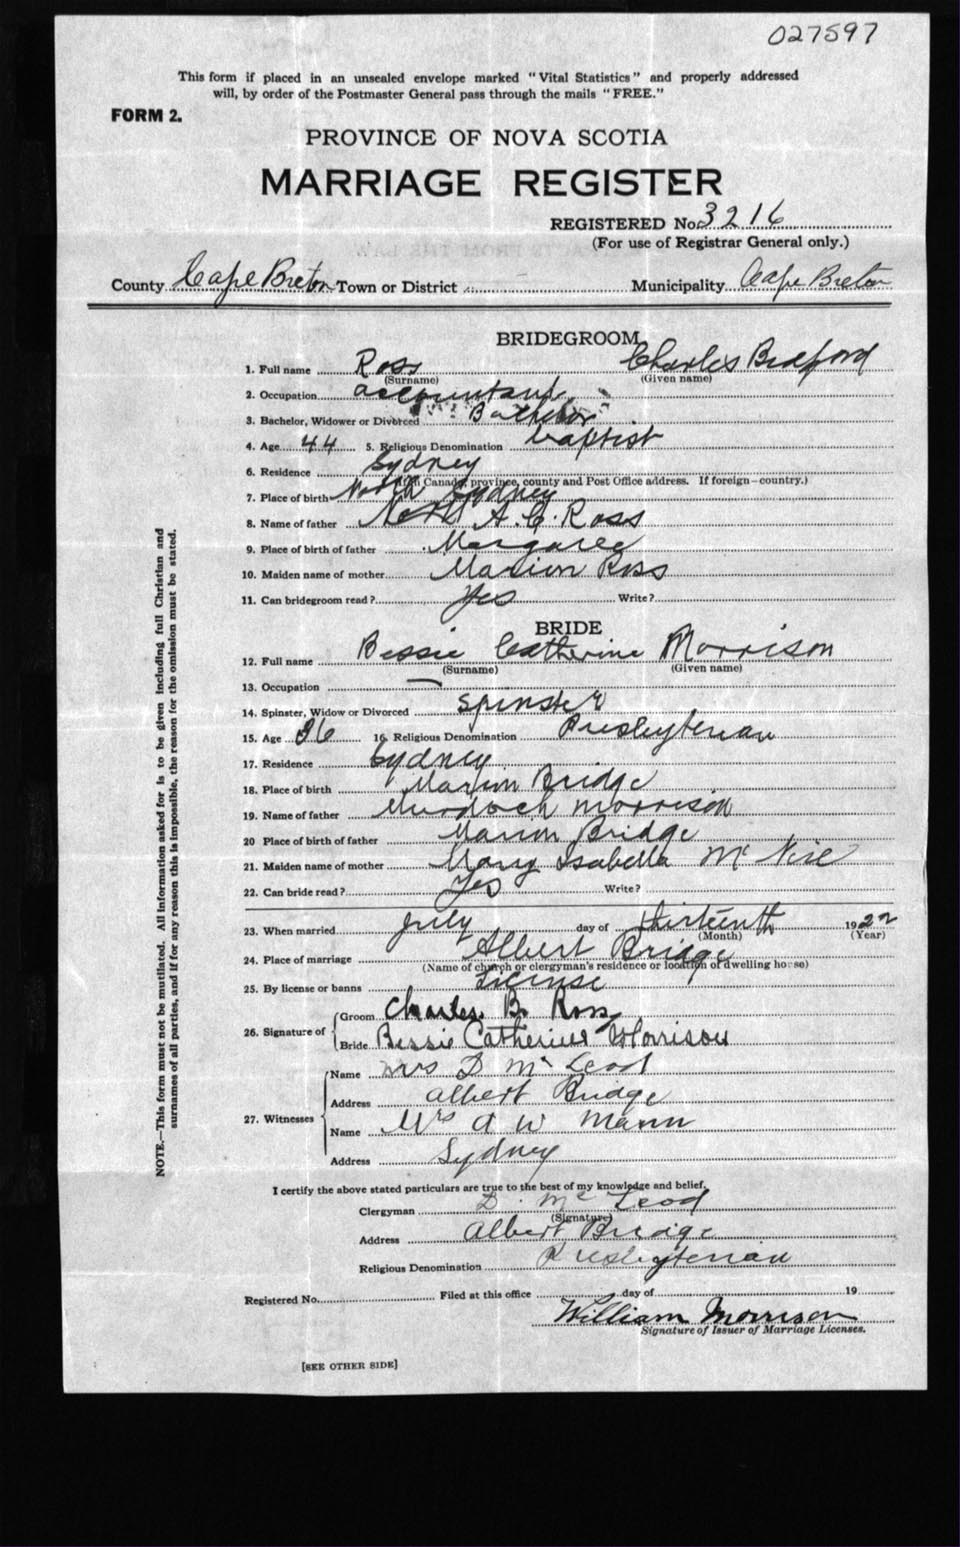 027597
This form if placed in an unsealed envelope marked "Vital Statistics" and properly addressed
will, by order of the Postmaster General pass through the mails "FREE."
FORM 2.
PROVINCE OF NOVA SCOTIA
MARRIAGE REGISTER
REGISTERED No. 3216
(For use of Registrar General only.)
County Cape Breton Town or District Municipality Cape Breton
BRIDEGROOM
1. Full name Ross Charles Bedford
(Surname) (Given name)
2. Occupation accountant
3. Bachelor, Widower or Divorced Bachelor
4. Age 44 5. Religious Denomination baptist
6. Residence Sydney
(If in Canada, province, county and Post Office address. If foreign—country.)
7. Place of birth North Sydney
8. Name of father A. C. Ross
9. Place of birth of father Margaree
10. Maiden name of mother Marion Ross
11. Can bridegroom read? Yes Write?
BRIDE
12. Full name Bessie Catherine Morrison
(Surname) (Given name)
13. Occupation —
14. Spinster, Widow or Divorced Spinster
15. Age 36 16. Religious Denomination Presbyterian
17. Residence Sydney
18. Place of birth Marion Bridge
19. Name of father Murdoch Morrison
20 Place of birth of father Marion Bridge
21. Maiden name of mother Mary Isabella
22. Can bride read? Yes Write?
23. When married July day of thirteenth 1922
(Month) (Year)
24. Place of marriage Albert Bridge
(Name of church or clergyman's residence or location of dwelling house)
25. By license or banns License
26. Signature of Groom Charles B. Ross
Bride Bessie Catherine Morrison
27. Witnesses Name Mrs D McLeod
Address Albert Bridge
Name Mrs A W Mann
Address Sydney
I certify the above stated particulars are true to the best of my knowledge and belief.
Clergyman D. McLeod
(Signature)
Address Albert Bridge
Religious Denomination Presbyterian
Registered No. Filed at this office day of 19
William Morrison
Signature of Issuer of Marriage Licenses.
[SEE OTHER SIDE]
NOTE.—This form must not be mutilated. All information asked for is to be given including full Christian and
surnames of all parties, and if for any reason this is impossible, the reason for the omission must be stated.